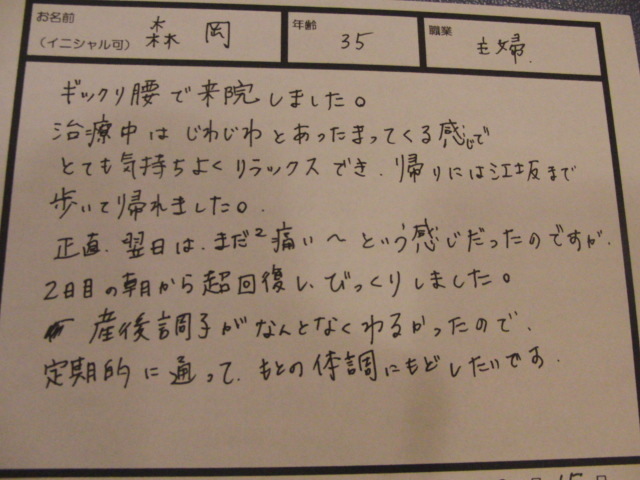 お名前
(イニシャル可)
森岡
年齢
35
職業
主婦.
ギックリ腰で来院しました。
治療中はじわじわとあったまってくる感じで
とても気持ちよくリラックスでき、帰りには江坂まで
歩いて帰れました。
正直、翌日は、まだ2痛い〜という感じだったのですが、
2日目の朝から超回復し、びっくりしました。
産後調子がなんとなくわるかったので、
定期的に通って、もとの体調にもどしたいです.
月15日